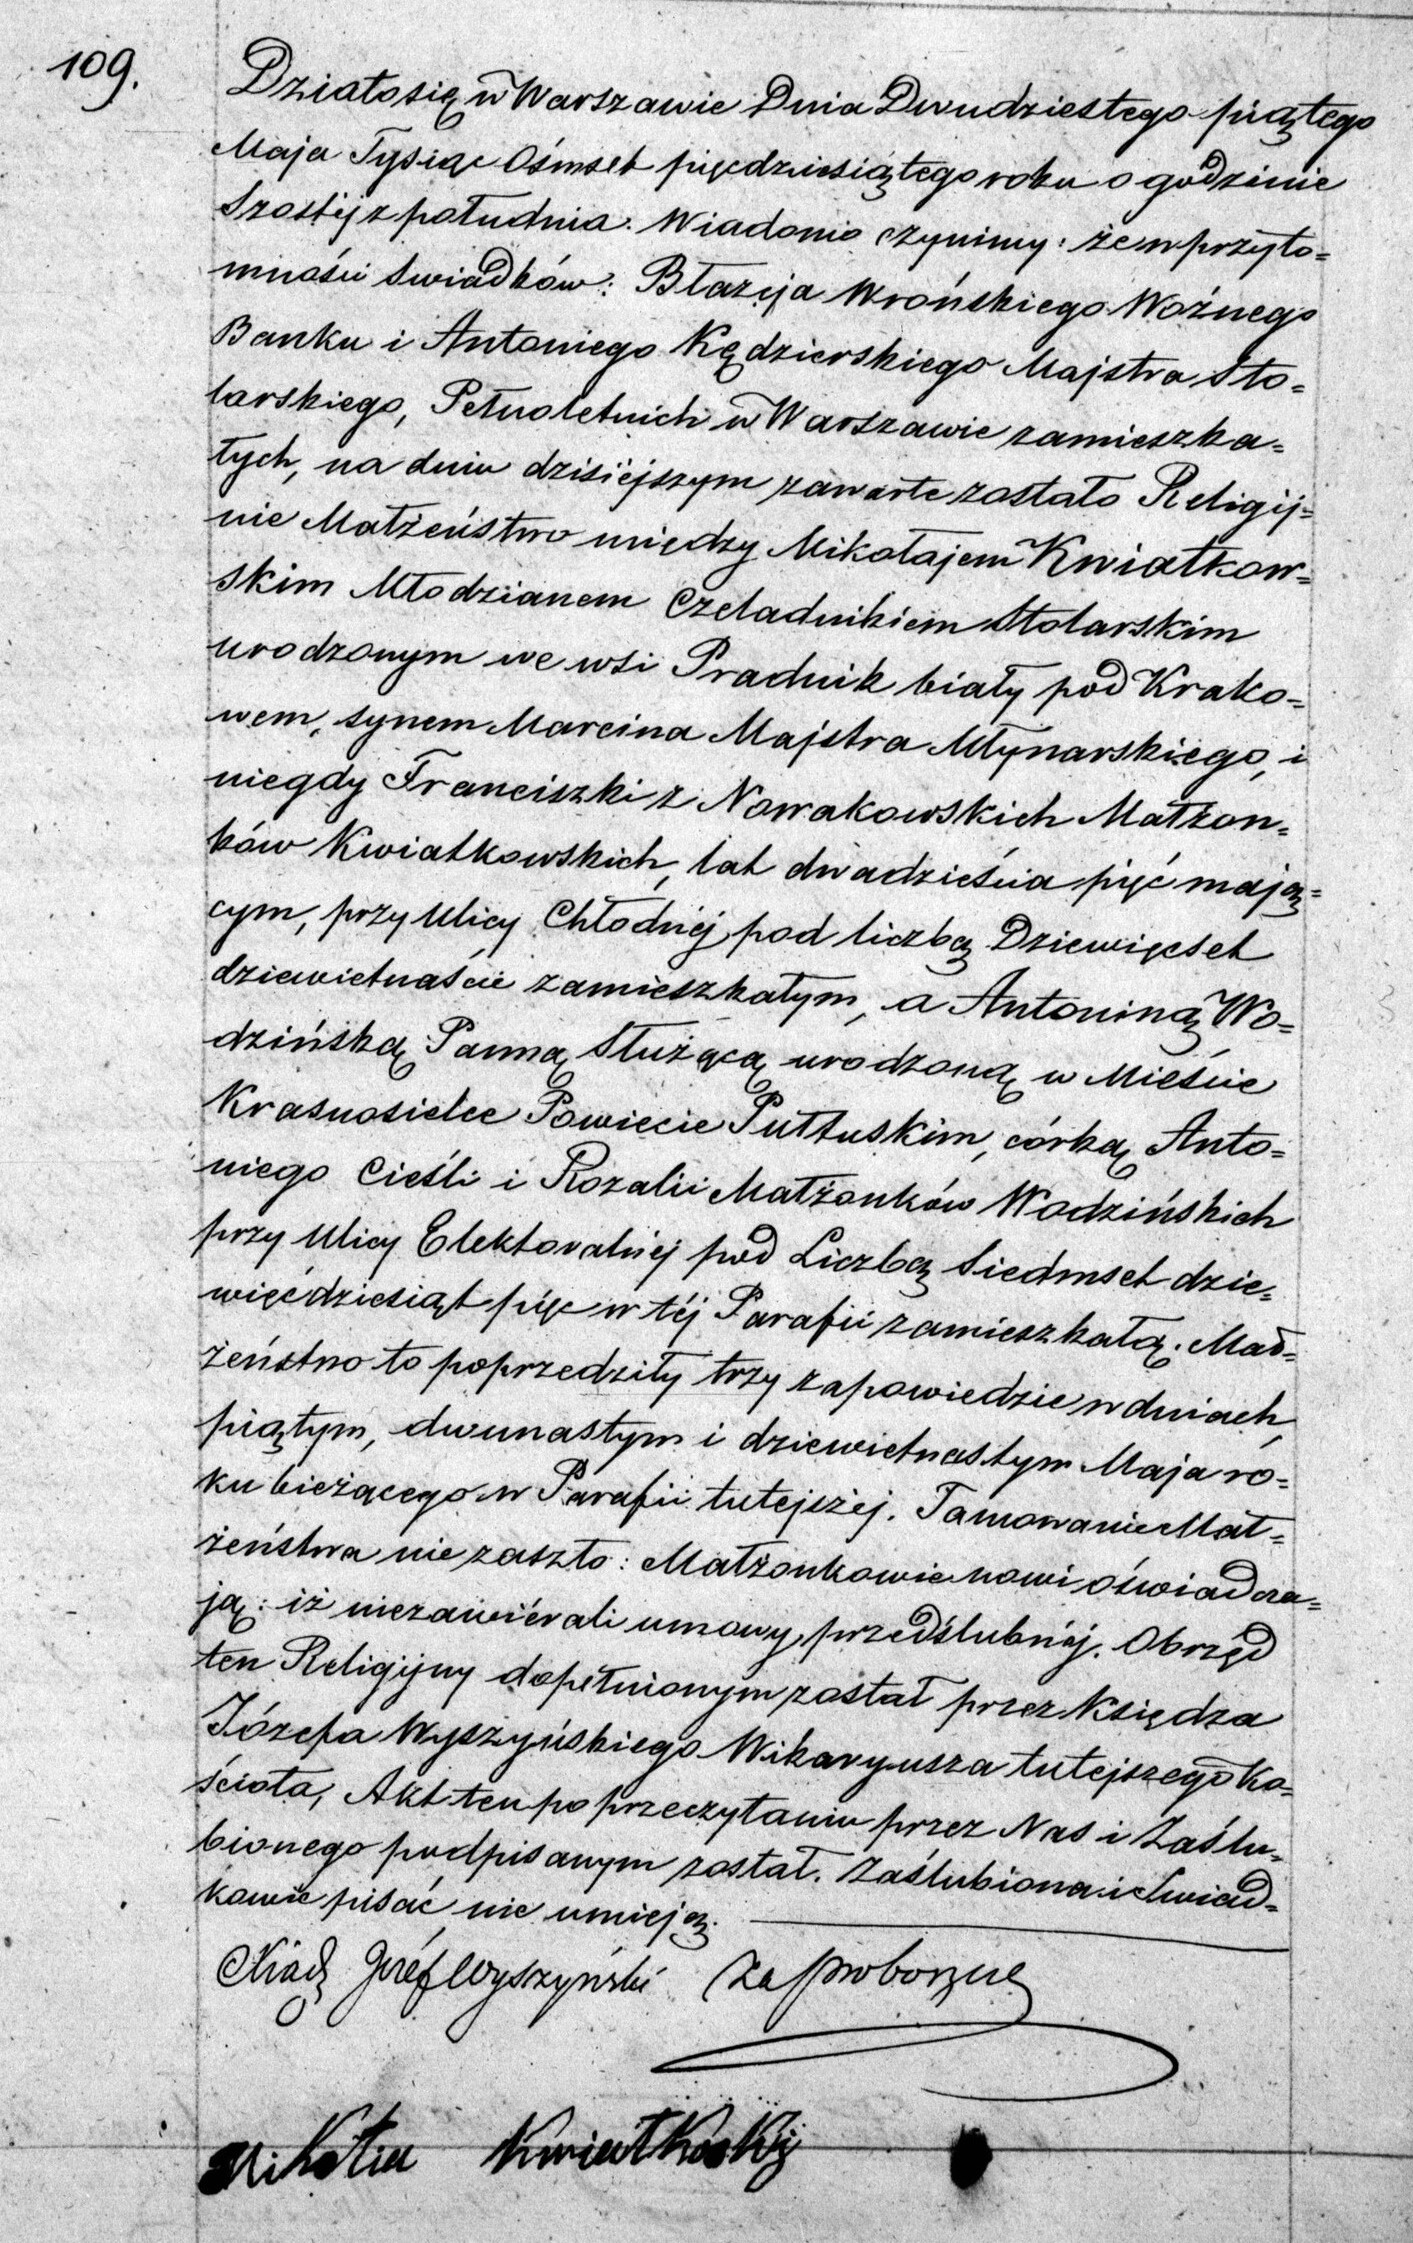 109.
Działo się w Warszawie Dnia Dwudziestego piątego
Maja Tysiąc Ośmset pięćdziesiątego roku o godzinie
Szostéj z południa. Wiadomo czynimy: że w przyto=
mności Swiadków: Błażeja Wrońskiego Woźnego
Banku i Antoniego Kędzierskiego Majstra Sto=
larskiego, Pełnoletnich w Warszawie zamieszka=
łych, na dniu dzisiéjszym zawarte zostało Religij=
nie Małżeństwo między Mikołajem Kwiatkow=
skim Młodzianem Czeladnikiem Stolarskim
urodzonym we wsi Pradnik biały pod Krako=
wem, synem Marcina Majstra Młynarskiego, i
niegdy Franciszki z Nowakowskich Małżon=
ków Kwiatkowskich, lat dwadzieścia pięć mają=
cym, przy Ulicy Chłodnéj pod liczbą Dziewięćset
dziewietnaście zamieszkałym, a Antoniną Wo=
dzińską Panną Służącą urodzoną w Mieście
Krasnosielce Powiecie Pułtuskim, córką Anto=
niego Cieśli i Rozalii Małżonków Wodzińskich
przy Ulicy Elektoralnéj pod Liczbą Siedmset dzie=
więćdziesiąt pięc w téj Parafii zamieszkałą. Mał=
żeństwo to poprzedziły trzy zapowiedzie w dniach,
piątym, dwunastym i dziewietnastym Maja ro=
ku bieżącego w Parafii tutejszéj. Tamowanie Mał=
żeństwa nie zaszło: Małżonkowie nowi oświadcza=
ją: iż niezawiérali umowy przedślubnéj. Obrzęd
ten Religijny dopełnionym został przez Księdza
Józefa Wyszyńskiego Wikaryusza tutejszego Ko=
ścioła, Akt ten po przeczytaniu przez Nas i Zaślu=
bionego podpisanym został. Zaślubiona i Swiad=
kowie pisać nie umieją.
Xiądz Józef Wyszyński za proboszcza
Mikołai Kwiatkoskij